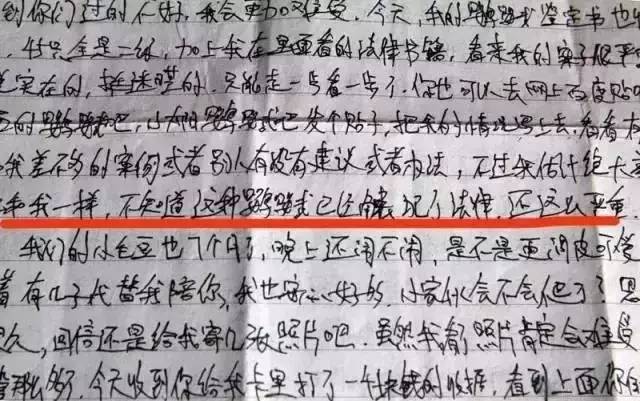 到你们过的不好，我会更加难受。今天，我的鹦鹉鉴定书也
全是二级，加上我在里面看的法律书籍，看来我的案子很严
实在的，挺迷茫的。只能走一步看一步了。你也可以去网上百度贴吧
的鹦鹉吧，小太阳鹦鹉吧发个贴子，把我的情况写上去，看看
我差不多的案例或者别人有没有建议或者办法，不过我估计绝大
和我一样，不知道这种鹦鹉已经触犯了法律，还这么严重
我们的小毛豆也7个月了，晚上还闹不闹，是不是更调皮可爱
着有儿子代替我陪你，我也安心好多，小家伙会不会爬了？
久，回信还是给我寄几张照片吧。虽然我看照片肯定会难受
今天收到你给我卡里打了一千块钱的收据，看到上面你的